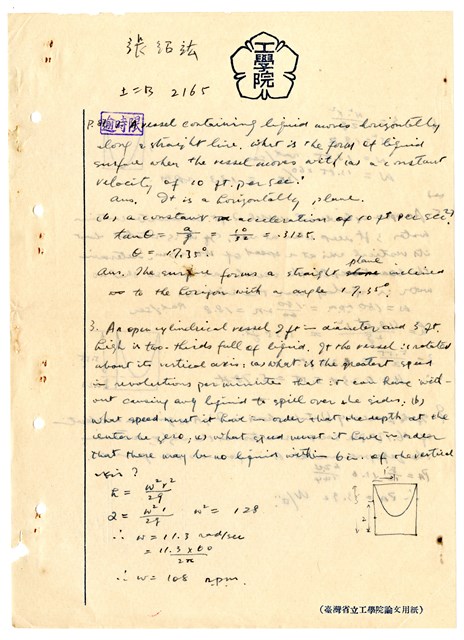 張紹鈜
工學院
土二B 2165
逾時限
P. A vessel containing liquid moves horizontally
along a straight line. What is the form of liquid
surface when the vessel moves with (a) a constant
velocity of 10 ft. per sec.?
Ans. It is a horizontally plane.
(b) a constant acceleration of 10 ft per sec²?
tan θ = a/g = 10/32 = .3125.
θ = 17.35°.
Ans. The surface forms a straight plane inclined
to the horizon with a angle 17.35°.
3. An open cylindrical vessel 2 ft in diameter and 3 ft.
high is two-thirds full of liquid. If the vessel is rotated
about its vertical axis; (a) what is the greatest speed
in revolutions per minutes that it can have with-
out causing any liquid to spill over the sides; (b)
what speed must it have in order that the depth at the
center be zero; (c) what speed must it have in order
that there may be no liquid within 6 in. of the vertical
axis?
h = ω²r²/2g
2 = ω²1/2g ω² = 128
∴ ω = 11.3 rad/sec
= 11.3 × 60/2π
∴ ω = 108 r.p.m.
(臺灣省立工學院論文用紙)